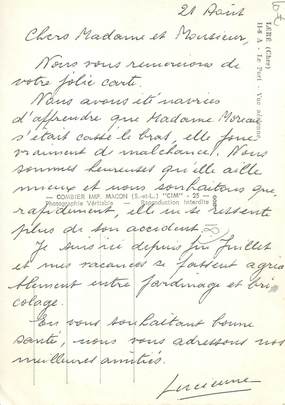 21 Août
Chers Madame et Monsieur,
Nous vous remercions de
votre jolie carte.
Nous avons été navrées
d'apprendre que Madame Moreau
s'était cassé le bras, elle joue
vraiment de malchance. Nous
sommes heureuses qu'elle aille
mieux et nous souhaitons que,
rapidement, elle ne se ressente
plus de son accident.
Je suis ici depuis fin Juillet
et mes vacances se passent agréa
blement entre jardinage et bri
colage.
En vous souhaitant bonne
santé, nous vous adressons nos
meilleures amitiés.
Lucienne
LERÉ (Cher)
114 A - Le Port - Vue aérienne
COMBIER IMP. MACON (S.-et-L.) "CIM"
Photographie Véritable Reproduction Interdite